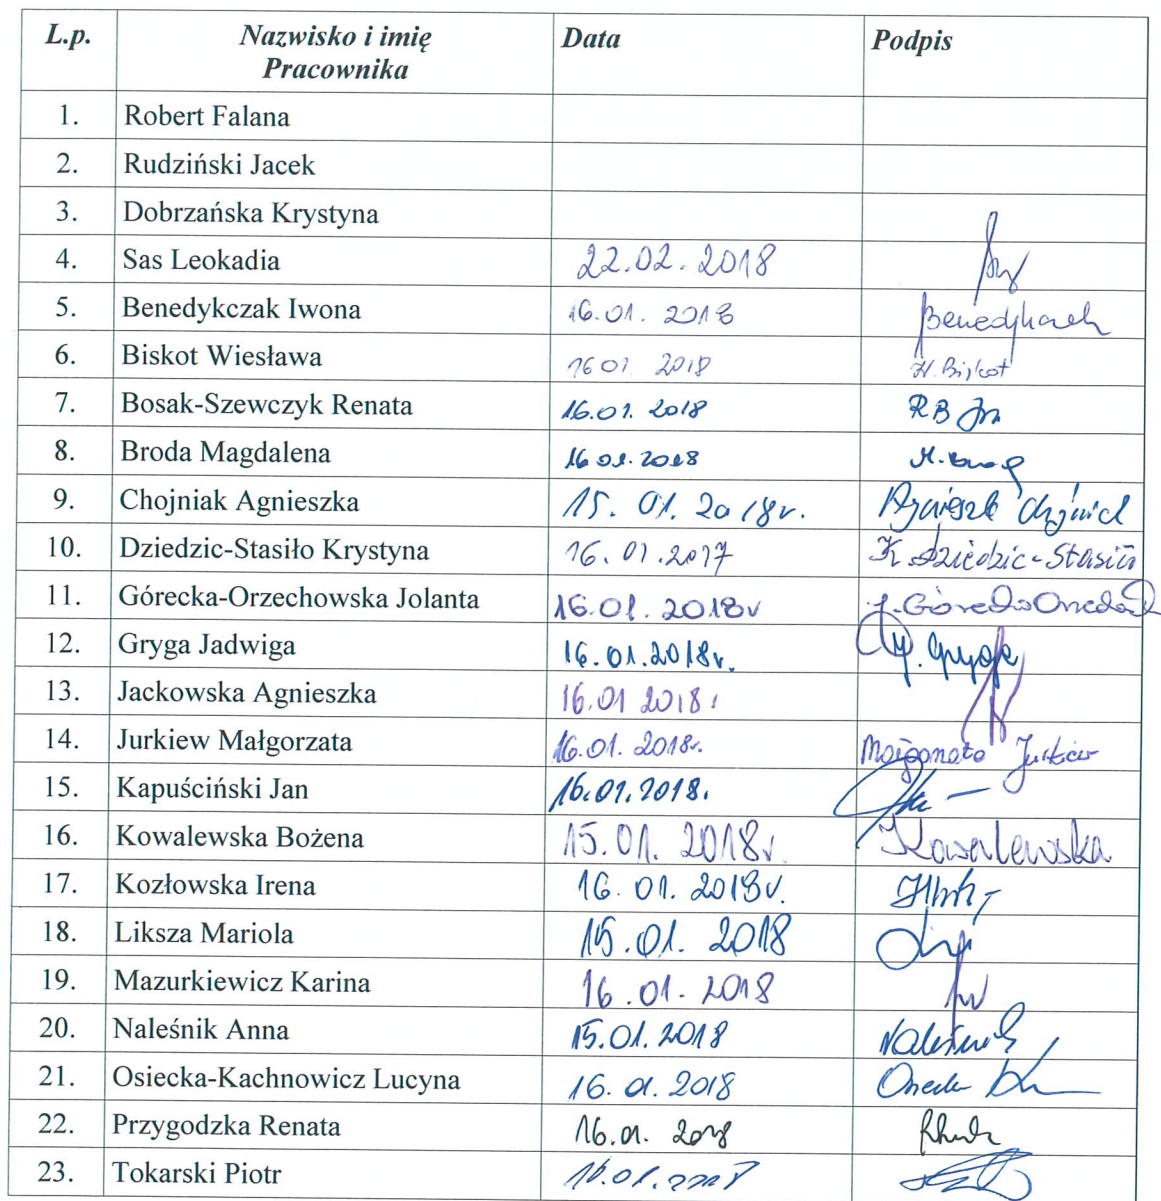 L.p. Nazwisko i imię Pracownika Data Podpis
1. Robert Falana
2. Rudziński Jacek
3. Dobrzańska Krystyna
4. Sas Leokadia 22.02.2018
5. Benedykczak Iwona 16.01.2018 Benedykczak
6. Biskot Wiesława 16 01 2018 W. Biskot
7. Bosak-Szewczyk Renata 16.01.2018 RB
8. Broda Magdalena 16 01.2018
9. Chojniak Agnieszka 15.01.2018r. Agnieszka Chojniak
10. Dziedzic-Stasiło Krystyna 16.01.2017 K Dziedzic-Stasiło
11. Górecka-Orzechowska Jolanta 16.01.2018r J. Górecka Orzechowska
12. Gryga Jadwiga 16.01.2018r. J. Gryga
13. Jackowska Agnieszka 16.01 2018r
14. Jurkiew Małgorzata 16.01.2018r. Małgorzata Jurkiew
15. Kapuściński Jan 16.01.2018.
16. Kowalewska Bożena 15.01.2018r Kowalewska
17. Kozłowska Irena 16.01.2018r.
18. Liksza Mariola 15.01.2018
19. Mazurkiewicz Karina 16.01.2018
20. Naleśnik Anna 15.01.2018 Naleśnik
21. Osiecka-Kachnowicz Lucyna 16.01.2018
22. Przygodzka Renata 16.01.2018
23. Tokarski Piotr 16.01.2018